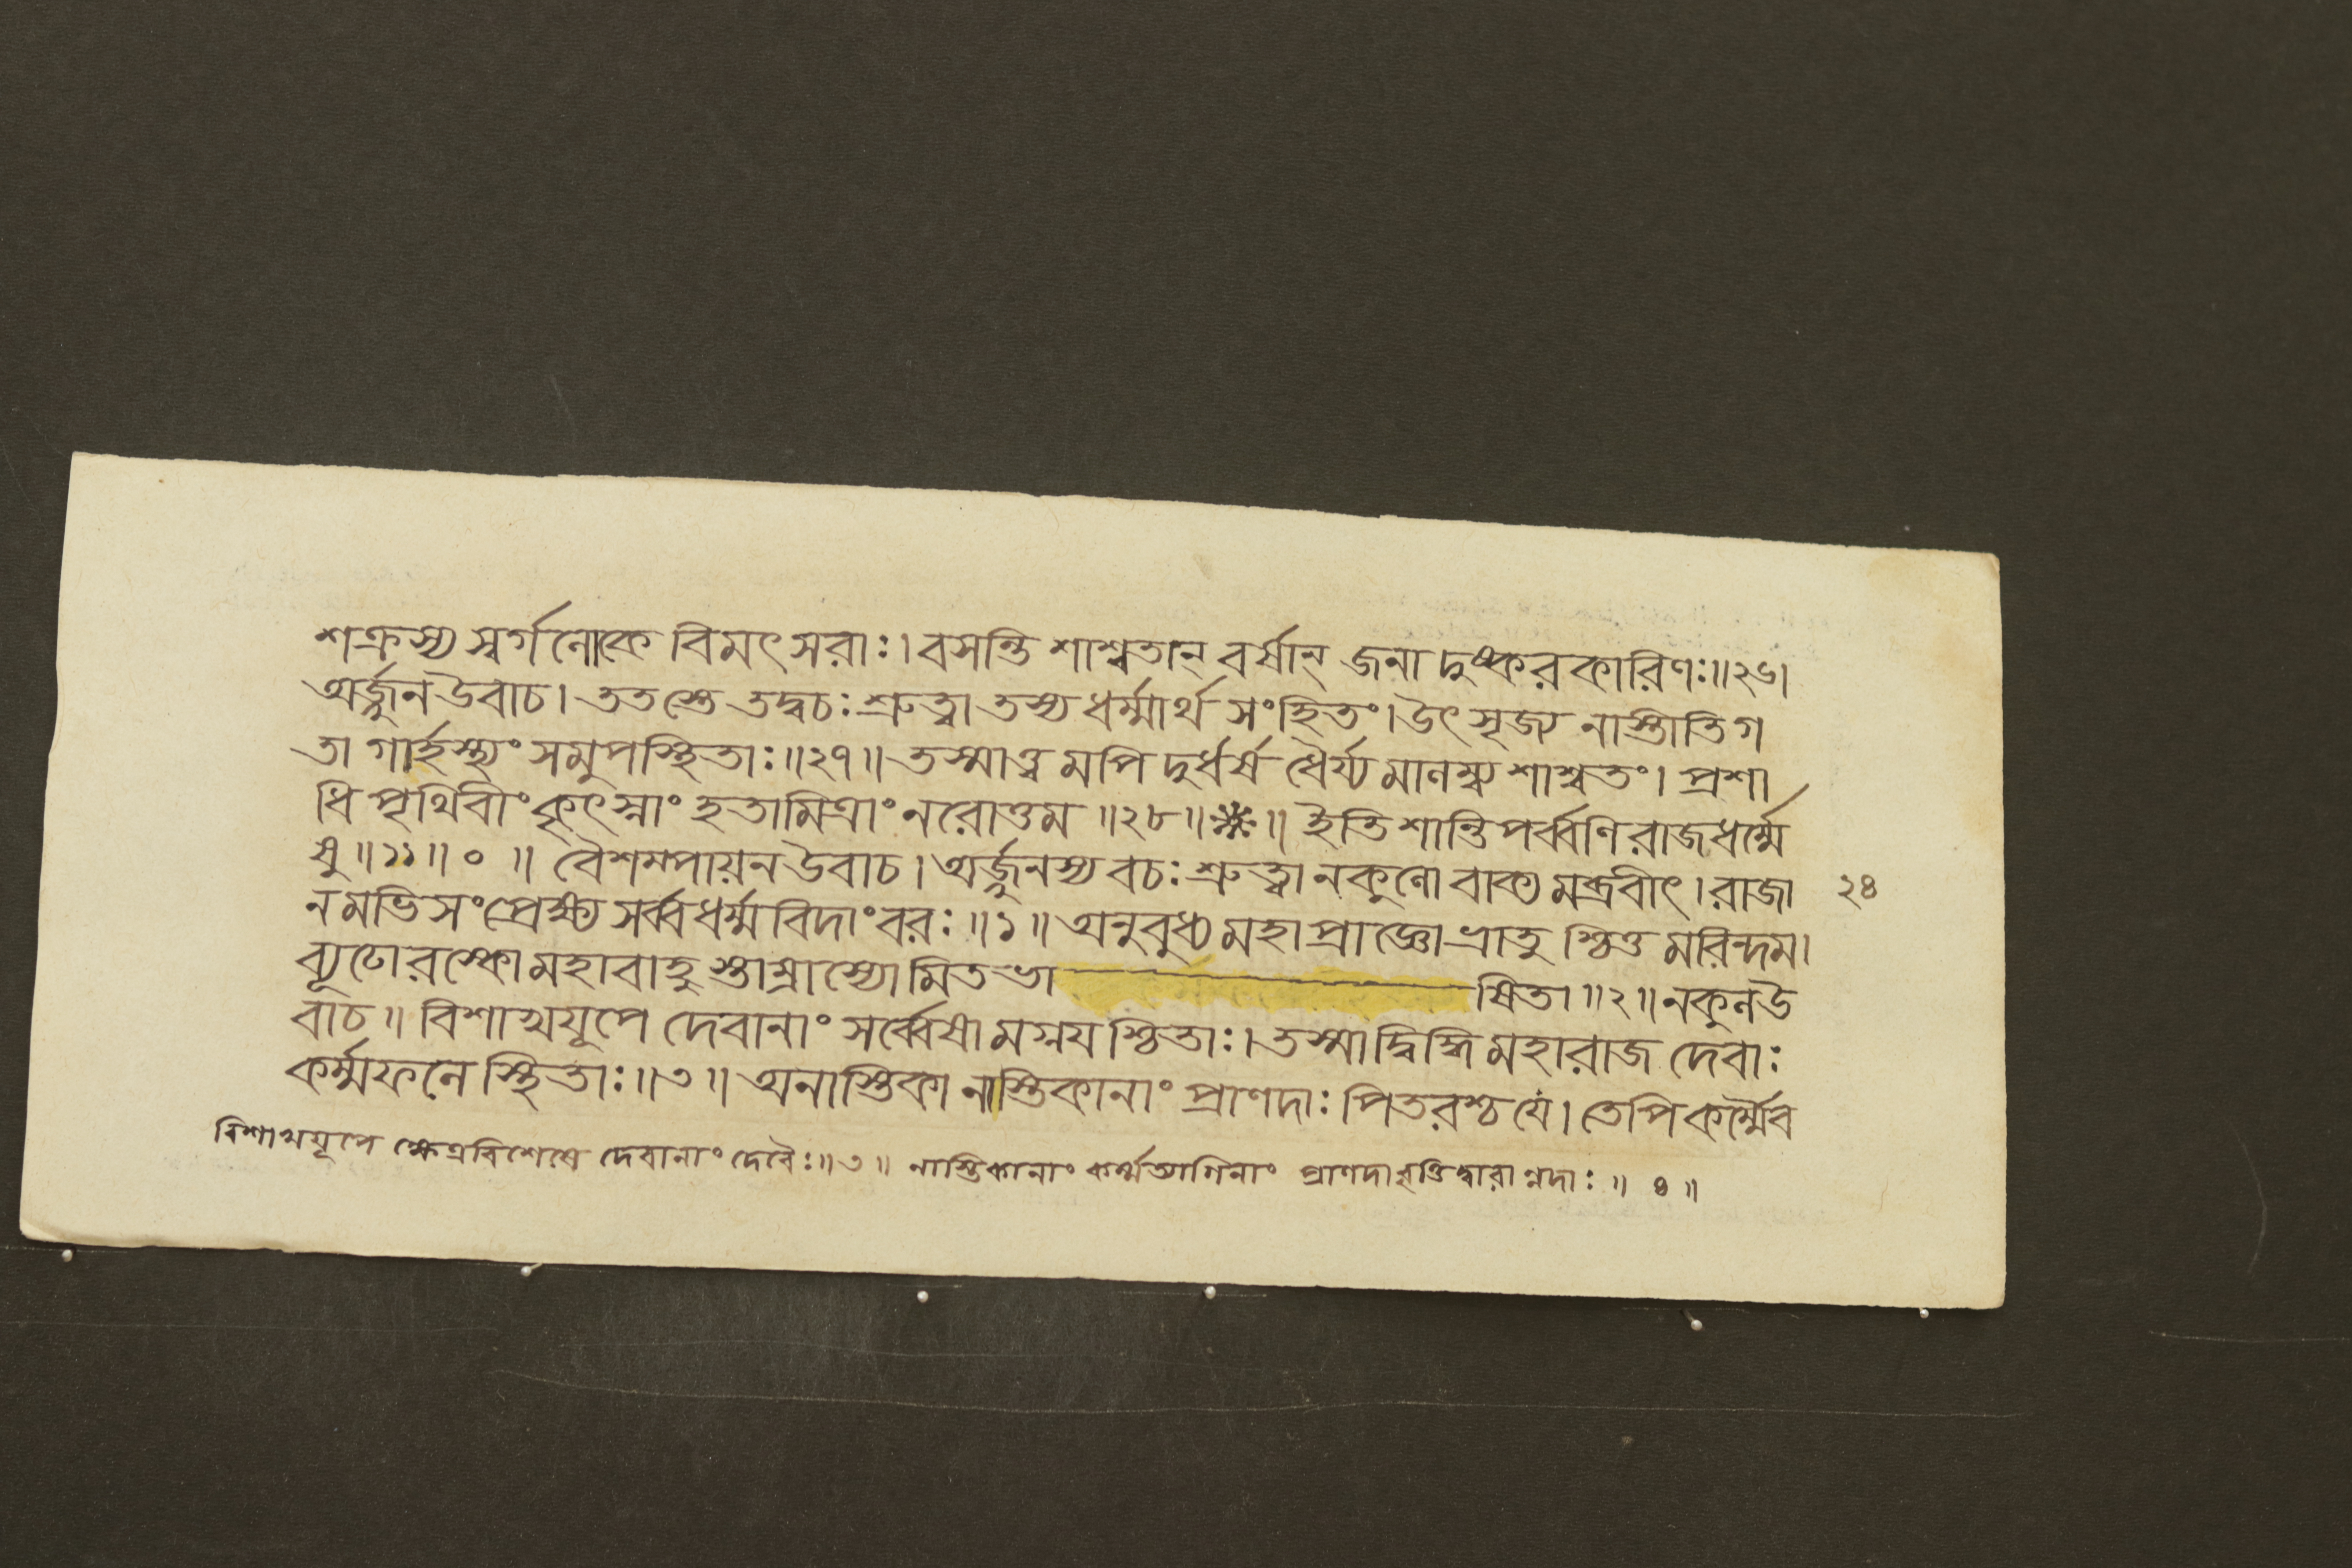 শক্রস্য স্বর্গলোকে বিমৎসরাঃ। বসন্তি শাশ্বতান্ বর্ষান্ জনা দুষ্করকারিণঃ॥২৬।
অর্জ্জুন উবাচ। ততস্তে তদ্বচঃ শ্রুত্বা তস্য ধর্ম্মার্থ সংহিতং। উৎসৃজ্য নাস্তীতি গ
তা গার্হস্থ্যং সমুপস্থিতাঃ॥২৭॥ তস্মাত্ত্বমপি দুর্ধর্ষ ধৈর্য্যমালম্ব্য শাশ্বতং। প্রশা
ধি পৃথিবীং কৃৎস্নাং হতামিত্রাং নরোত্তম ॥২৮॥※॥ ইতি শান্তিপর্ব্বণি রাজধর্ম্মে
ষু ॥১১॥ ০ ॥ বৈশম্পায়ন উবাচ। অর্জ্জুনস্য বচঃ শ্রুত্বা নকুলো বাক্যমব্রবীৎ। রাজা ২৪
নমভিসংপ্রেক্ষ্য সর্ব্বধর্ম্মবিদাংবরঃ॥১॥ অনুরুধ্য মহাপ্রাজ্ঞো ভ্রাতুশ্চিত্তমরিন্দম।
ব্যূঢোরস্কো মহাবাহুস্তাম্রাস্যো মিতভা ষিতা ॥২॥ নকুল উ
বাচ॥ বিশাখযূপে দেবানাং সর্ব্বেষামগ্নযশ্চিতাঃ। তস্মাদ্বিদ্ধি মহারাজ দেবাঃ
কর্ম্মফলে স্থিতাঃ॥৩॥ অনাস্তিকা নাস্তিকানাং প্রাণদাঃ পিতরশ্চ যে। তেপি কর্ম্মৈব
বিশাখযূপে ক্ষেত্রবিশেষে দেবানাং দেবৈঃ॥৩॥ নাস্তিকানাং কর্ম্মত্যাগিনাং প্রাণদা বৃষ্টিদ্বারান্নদাঃ॥ ৪॥